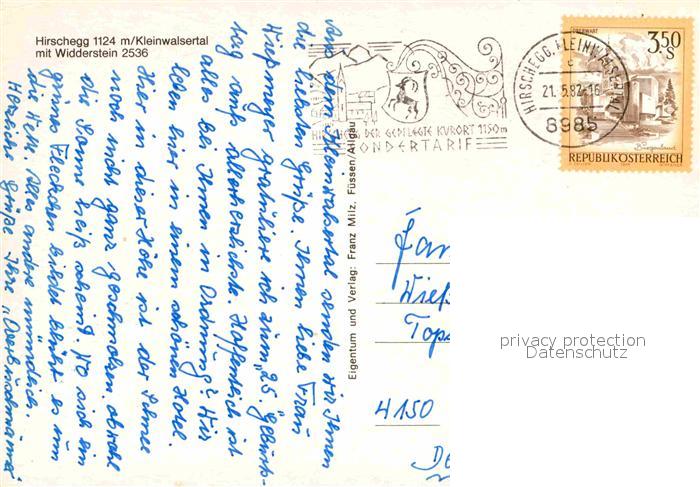 Hirschegg 1124 m/Kleinwalsertal
mit Widderstein 2536
HIRSCHEGG DER GEPFLEGTE KURORT 1150m
SONDERTARIF
HIRSCHEGG, KLEINWALSERTAL
c
21.5.82-16
8985
OBERWART
3.50
S
Burgenland
REPUBLIK ÖSTERREICH
Aus dem Kleinwalsertal senden wir Ihnen
die liebsten Grüße. Ihnen liebe Frau
gratuliere ich zum „25." Geburts-
tag aufs allerherzlichste. Hoffentlich ist
alles bei Ihnen in Ordnung? Wir
leben hier in einem schönen Hotel.
Hier in dieser Höhe ist der Schnee
noch nicht ganz geschmolzen. obwohl
die Sonne heiß scheint. Wo sich ein
grünes Fleckchen bildet blüht es um
die Wette. Alles andere mündlich.
Herzliche Grüße Ihre
Eigentum und Verlag: Franz Milz, Füssen/Allgäu
Fam
Wieß
Tops
4150
De
privacy protection
Datenschutz